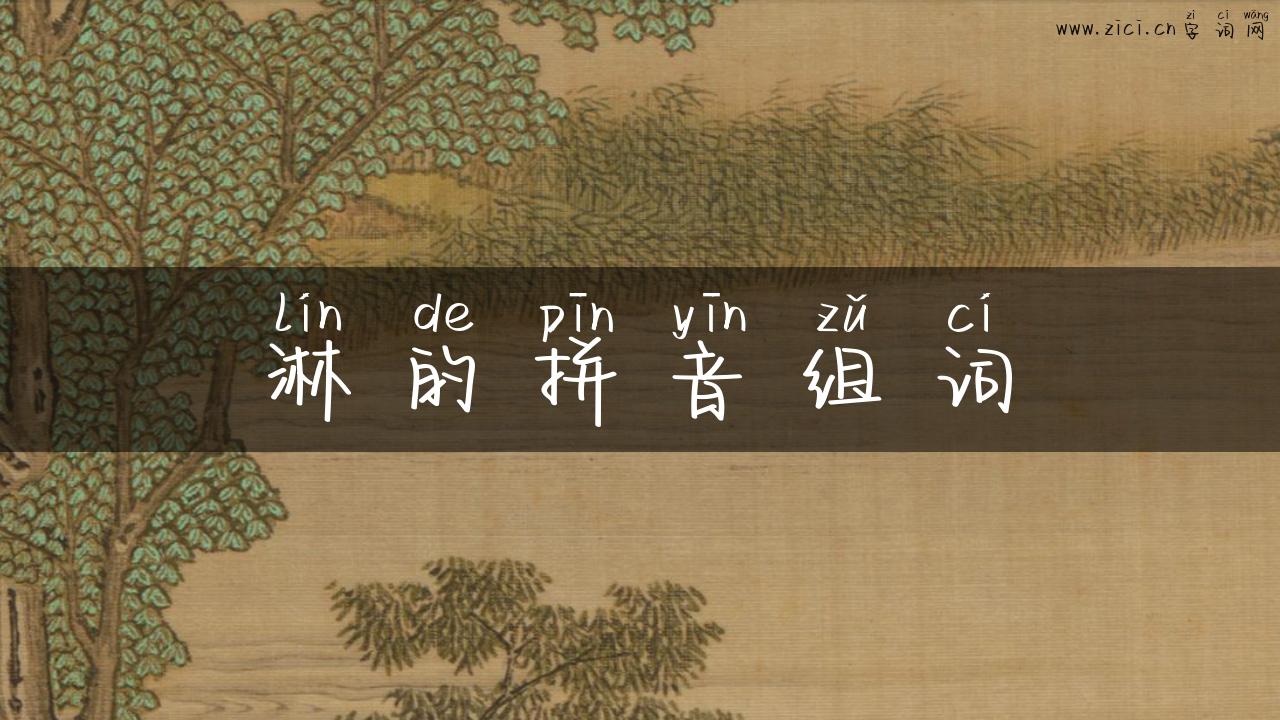 zì cí wǎng
www.zici.cn 字词网
lín de pīn yīn zǔ cí
淋的拼音组词